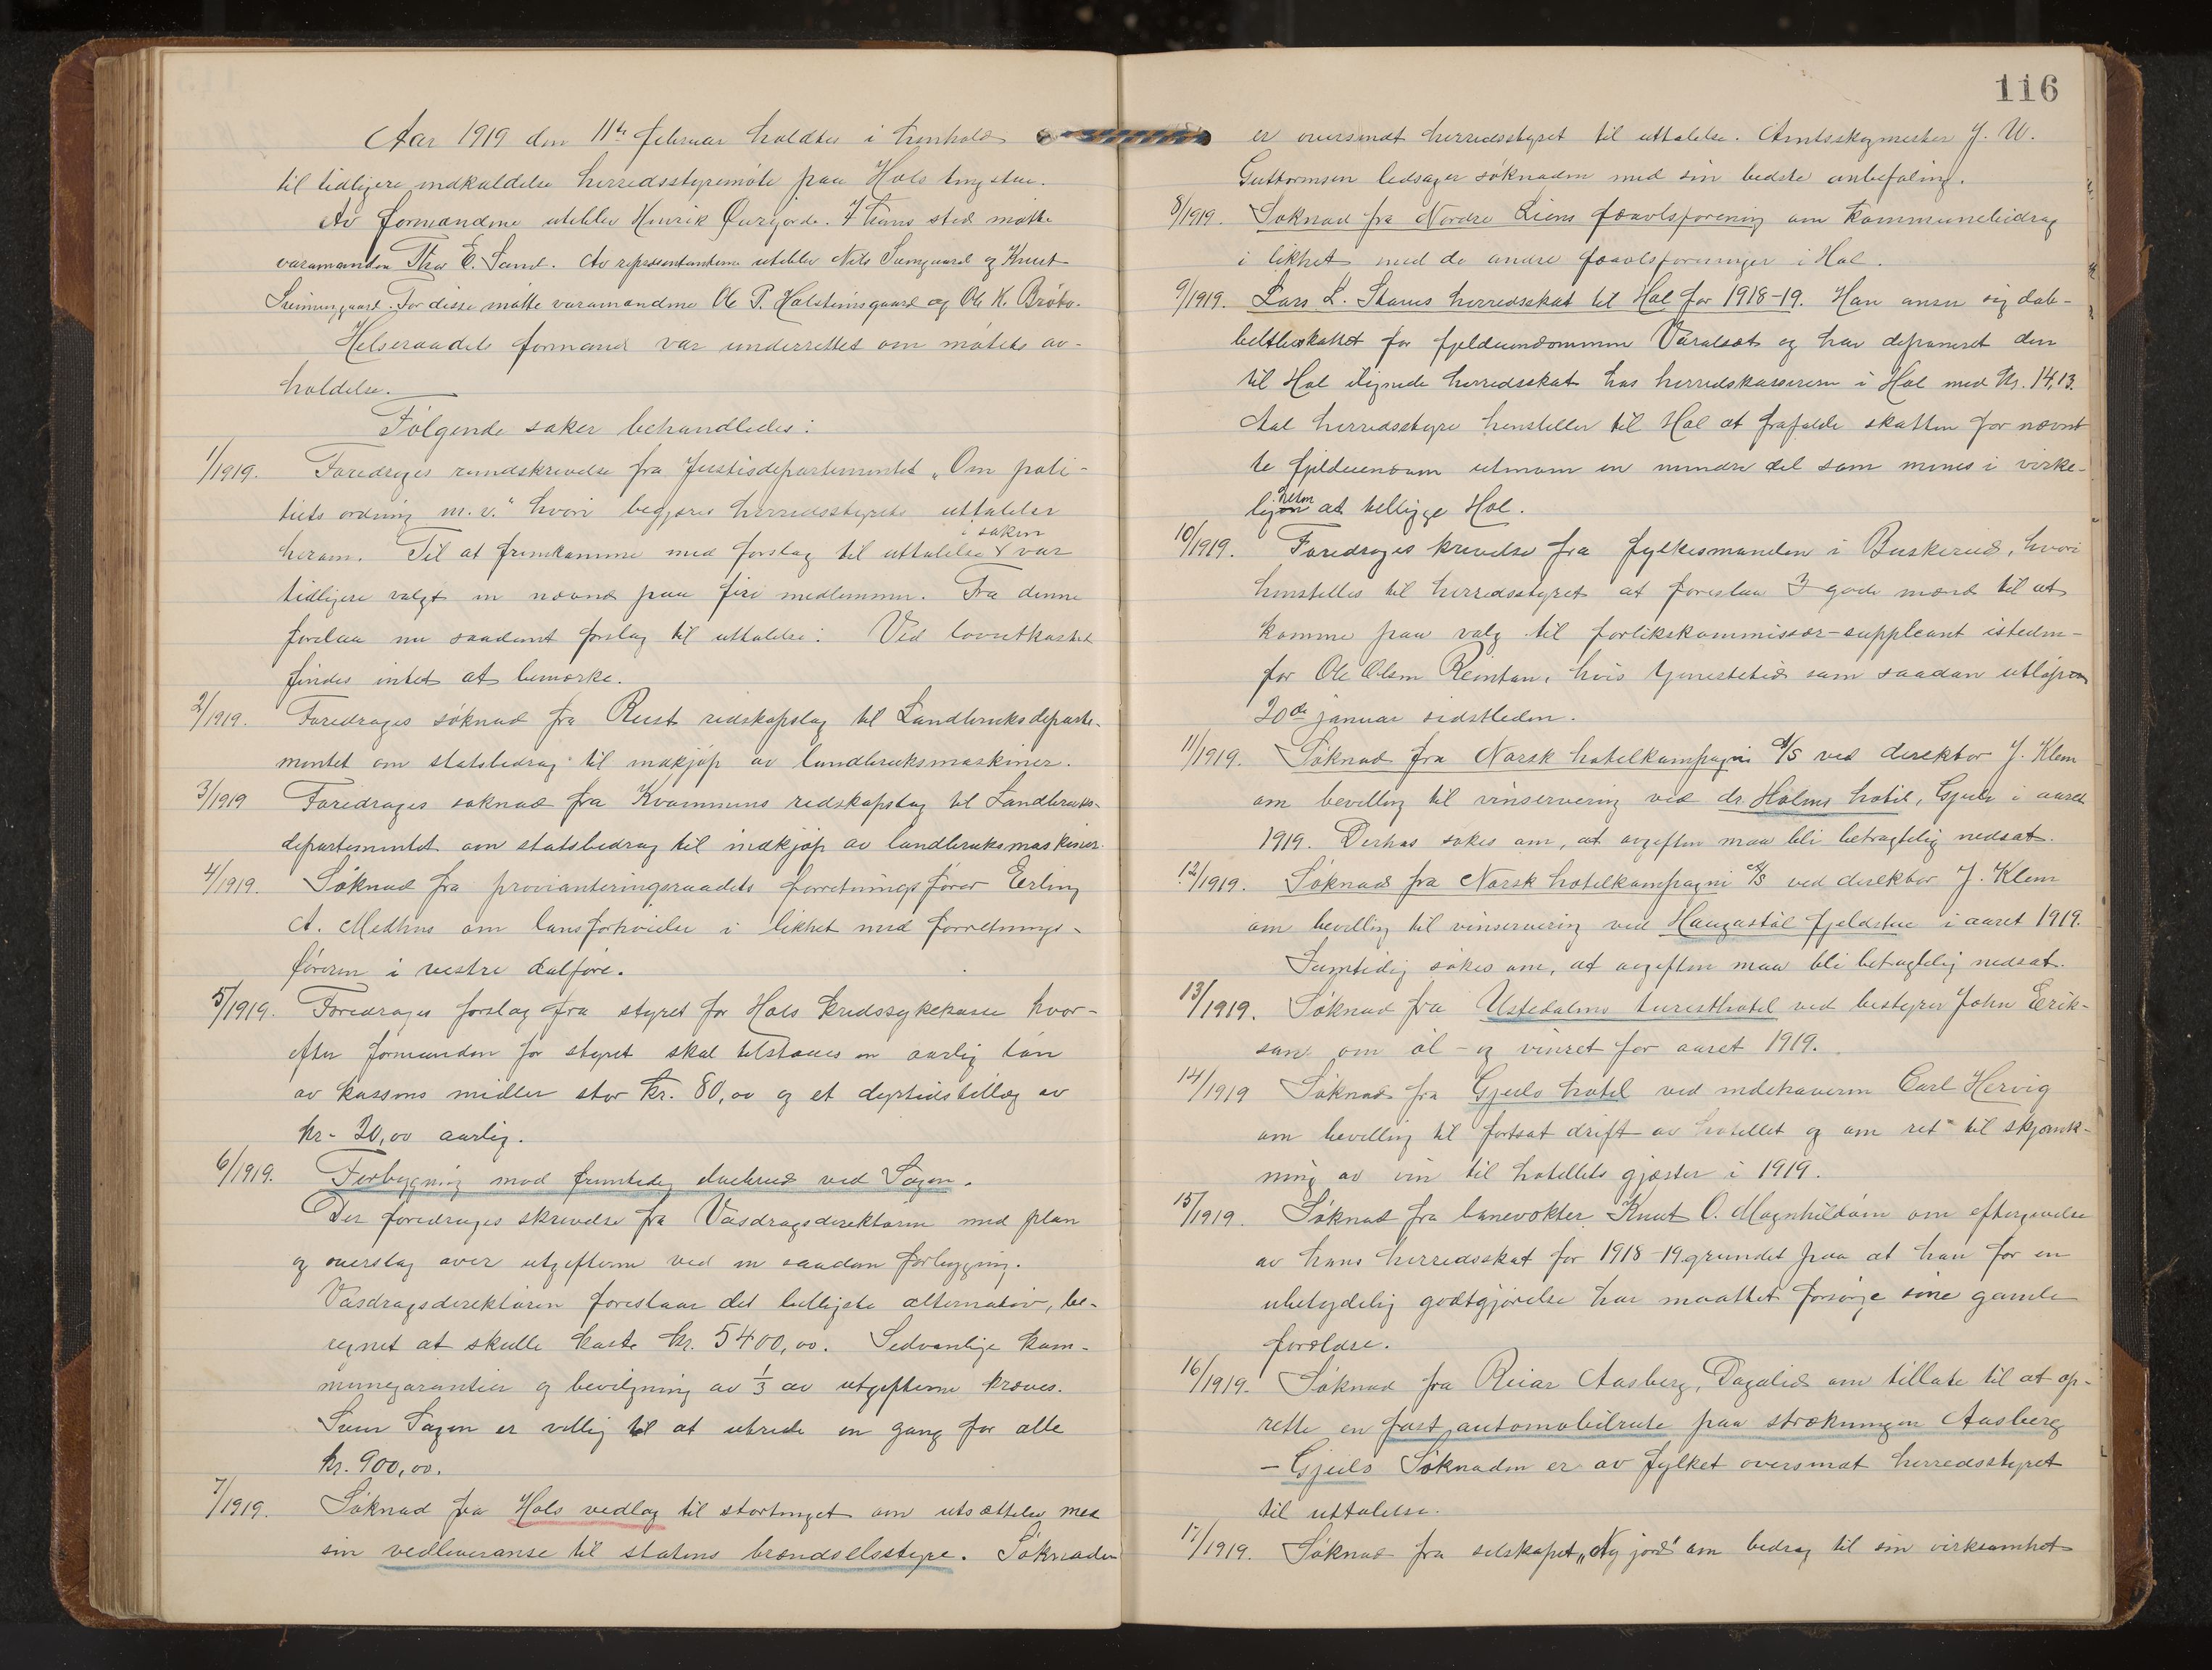 Aar 1919 den 11te februar holdtes i henhold
til tidligere indkaldelse herredsstyremöte paa Hols tingstue.
Av formændene uteblev Henrik . I hans sted mötte
varamanden Thor E. Sand. Av repræsentanterne uteblev Nils og Knut
. For disse mötte varamændene Ole P. Holsteinsgaard og Ole K. Bröto.
Helseraadets formand var underrettet om mötets av-
holdelse.
Fölgende saker behandledes:
1/1919. Foredroges rundskrivelse fra Justisdepartementet „Om poli-
tiets ordning m.v." hvori begjæres herredsstyrets uttalelse
i saken
herom. Til at fremkomme med forslag til uttalelse var
tidligere valgt en nævnd paa fire medlemmer. Fra denne
forelaa nu saadant forslag til uttalelse: Ved lovutkastet
findes intet at bemerke.
2/1919. Foredroges söknad fra Rust redskapslag til Landbruksdeparte-
mentet om statsbidrag til indkjöp av landbruksmaskiner.
3/1919 Foredroges söknad fra Kvammens redskapslag til Landbruks-
departementet om statsbidrag til indkjöp av landbruksmaskiner.
4/1919. Söknad fra provianteringsraadets forretningsförer Erling
A. Medhus om lönsforhöielse i likhet med forretnings-
föreren i vestre dalföre.
5/1919. Foredroges forslag fra styret for Hols kredssykekasse hvor-
efter formanden for styret skal tilstaaes en aarlig lön
av kassens midler stor kr. 80,00 og et dyrtidstillæg av
kr. 20,00 aarlig.
6/1919. Forbygning mod fremtidig elvebrud ved Sögen.
Der foredroges skrivelse fra Vasdragsdirektören med plan
og overslag over utgifterne ved en saadan forbygning.
Vasdragsdirektören foreslaar det billigste alternativ, be-
regnet at skulle koste kr. 5400,00. Sedvanlige kom-
munegarantier og bevilgning av 1/3 av utgifterne kræves.
Svein Sögen er villig til at utrede en gang for alle
kr. 900,00.
7/1919. Söknad fra Hols vedlag til stortinget om utsættelse med
sin vedleveranse til statens brændselsstyre. Söknaden
116
er oversendt herredsstyret til uttalelse. Amtsskogmester J. W.
Guttormsen ledsager söknaden med sin bedste anbefaling.
8/1919. Söknad fra Nordre Liens fæavlsforening om kommunebidrag
i likhet med de andre fæavlsforeninger i Hol.
9/1919. Lars L. Stavns herredsskat til Hol for 1918-19. Han anser sig dob-
beltbeskattet for fjeldeiendommen og har deponeret den
til Hol ilignede herredsskat hos herredskassereren i Hol med kr. 14,13.
Aal herredsstyre henstiller til Hol at frafalde skatten for nævnt
te fjeldeiendom utenom en mindre del som menes i virke-
heten
ligen at tilligge Hol.
10/1919. Foredroges krivelse fra fylkesmanden i Buskerud, hvori
henstilles til herredsstyret at foreslaa 3 gode mænd til at
komme paa valg til forlikskommissær-suppleant isteden-
for Ole Olsen Reintan, hvis tjenestetid som saadan utlöp
20de januar sidstleden.
11/1919. Söknad fra Norsk hotelkompagni A/S ved direktör J. Klem
om bevilling til vinservering ved dr. Holms hotel, Gjeilo i aaret
1919. Derhos sökes om, at avgiften maa bli betragtelig nedsat.
12/1919. Söknad fra Norsk hotelkompagni A/S ved direktör J. Klem
om bevilling til vinservering ved Haugastöl fjeldstue i aaret 1919.
Samtidig sökes om, at avgiften maa bli betragtelig nedsat.
13/1919. Söknad fra Ustedalens turisthotel ved bestyrer John Erik-
sen om öl- og vinret for aaret 1919.
14/1919 Söknad fra Gjeilo hotel ved indehaveren Carl Hervig
om bevilling til fortsat drift av hotellet og om ret til skjænk-
ning av vin til hotellets gjæster i 1919.
15/1919. Söknad fra banevokter Knut O. Magnhildöen om eftergivelse
av hans herredsskat for 1918-19 grundet paa at han for en
ubetydelig godtgjörelse har maattet forsörge sine gamle
forældre.
16/1919. Söknad fra Reiar Aasberg, Dagalid om tillate til at op-
rette en fast automobilrute paa strækningen Aasberg
- Gjeilo Söknaden er av fylket oversendt herredsstyret
til uttalelse.
17/1919. Söknad fra selskapet „Ny jord" om bidrag til sin virksomhet